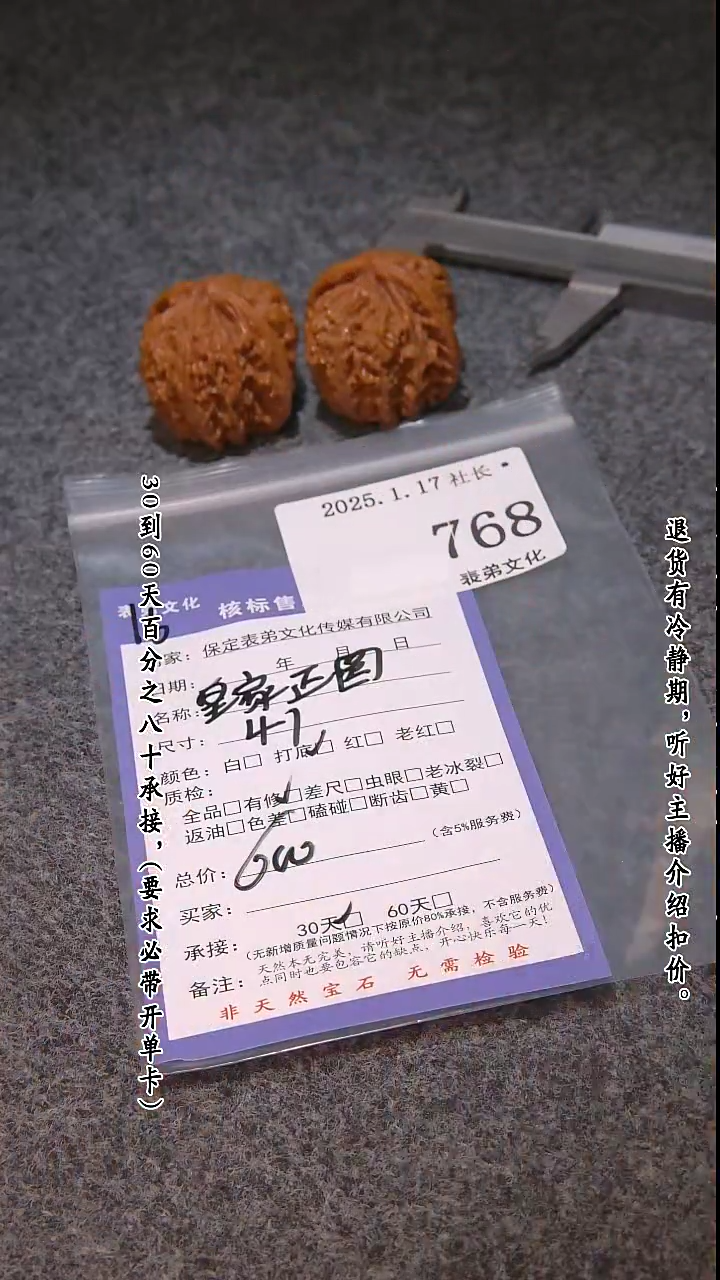 2025.1.17 社长·
768
表弟文化
表弟文化 核标售
家：保定表弟文化传媒有限公司
日期： 年 月 日
名称：皇家正园
尺寸：41
颜色：白□ 打底□ 红□ 老红□
质检：
全品□有修□差尺□虫眼□老冰裂□
返油□色差□磕碰□断齿□黄□
总价：600 (含5%服务费)
买家：
30天□ 60天□
承接：(无新增质量问题情况下按原价80%承接，不含服务费)
备注：天然本无完美，请听好主播介绍，喜欢它的优
点同时也要包容它的缺点，开心快乐每一天！
非天然宝石 无需检验
30到60天百分之八十承接，(要求必带开单卡)
退货有冷静期，听好主播介绍扣价。